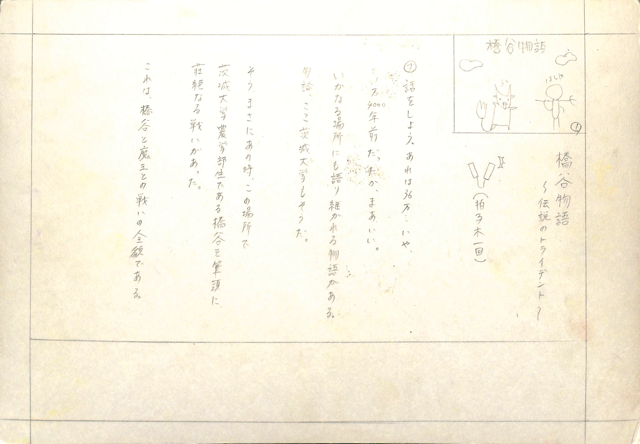 橋谷物語
はしや
①
橋谷物語
〜伝説のトライデント〜
(拍子木一回)
① 話をしよう。あれは36万…いや、
1万4000年前だったか、まあいい。
いかなる場所にも語り継がれる物語がある。
勿論、ここ茨城大学もそうだ。
そう、まさにあの時、この場所で
茨城大学農学部生である橋谷を筆頭に、
壮絶なる戦いがあった。
これは、橋谷と魔王との戦いの全貌である。